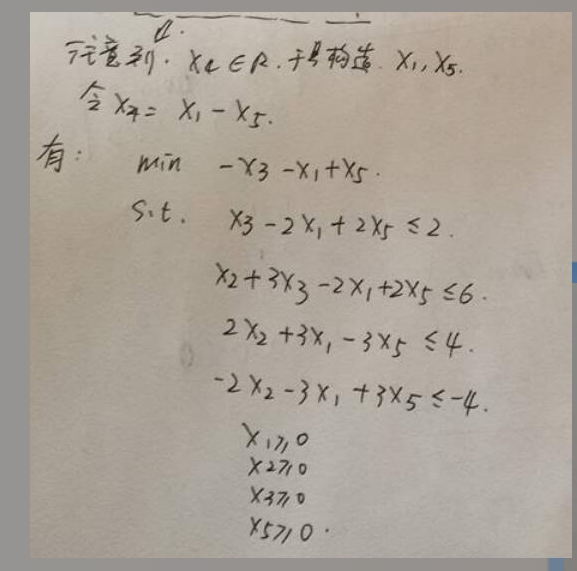 注意到. X4 ∈ R. 于是构造. X1, X5.
令 X4 = X1 - X5.
有: min -X3 - X1 + X5.
s.t. X3 - 2X1 + 2X5 ≤ 2.
X2 + 3X3 - 2X1 + 2X5 ≤ 6.
2X2 + 3X1 - 3X5 ≤ 4.
-2X2 - 3X1 + 3X5 ≤ -4.
X1 ≥ 0
X2 ≥ 0
X3 ≥ 0
X5 ≥ 0.